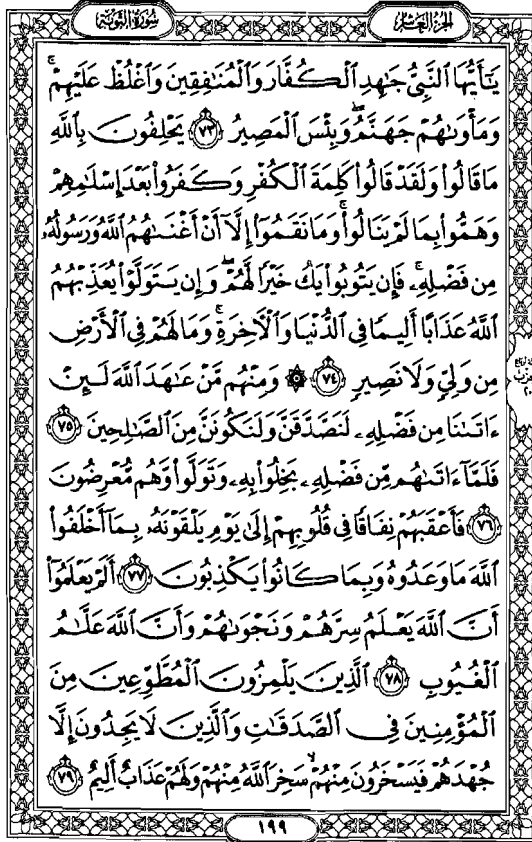 سُورَةُ التَّوْبَةِ
الجُزْءُ العَاشِرُ
يَـٰٓأَيُّهَا ٱلنَّبِيُّ جَـٰهِدِ ٱلْكُفَّارَ وَٱلْمُنَـٰفِقِينَ وَٱغْلُظْ عَلَيْهِمْۚ
وَمَأْوَىٰهُمْ جَهَنَّمُۖ وَبِئْسَ ٱلْمَصِيرُ ٧٣ يَحْلِفُونَ بِٱللَّهِ
مَا قَالُوا۟ وَلَقَدْ قَالُوا۟ كَلِمَةَ ٱلْكُفْرِ وَكَفَرُوا۟ بَعْدَ إِسْلَـٰمِهِمْ
وَهَمُّوا۟ بِمَا لَمْ يَنَالُوا۟ۚ وَمَا نَقَمُوٓا۟ إِلَّآ أَنْ أَغْنَىٰهُمُ ٱللَّهُ وَرَسُولُهُۥ
مِن فَضْلِهِۦۚ فَإِن يَتُوبُوا۟ يَكُ خَيْرًا لَّهُمْۖ وَإِن يَتَوَلَّوْا۟ يُعَذِّبْهُمُ
ٱللَّهُ عَذَابًا أَلِيمًا فِى ٱلدُّنْيَا وَٱلْـَٔاخِرَةِۚ وَمَا لَهُمْ فِى ٱلْأَرْضِ
مِن وَلِىٍّ وَلَا نَصِيرٍ ٧٤ ۞ وَمِنْهُم مَّنْ عَـٰهَدَ ٱللَّهَ لَئِنْ
ءَاتَىٰنَا مِن فَضْلِهِۦ لَنَصَّدَّقَنَّ وَلَنَكُونَنَّ مِنَ ٱلصَّـٰلِحِينَ ٧٥
فَلَمَّآ ءَاتَىٰهُم مِّن فَضْلِهِۦ بَخِلُوا۟ بِهِۦ وَتَوَلَّوا۟ وَّهُم مُّعْرِضُونَ
٧٦ فَأَعْقَبَهُمْ نِفَاقًا فِى قُلُوبِهِمْ إِلَىٰ يَوْمِ يَلْقَوْنَهُۥ بِمَآ أَخْلَفُوا۟
ٱللَّهَ مَا وَعَدُوهُ وَبِمَا كَانُوا۟ يَكْذِبُونَ ٧٧ أَلَمْ يَعْلَمُوٓا۟
أَنَّ ٱللَّهَ يَعْلَمُ سِرَّهُمْ وَنَجْوَىٰهُمْ وَأَنَّ ٱللَّهَ عَلَّـٰمُ
ٱلْغُيُوبِ ٧٨ ٱلَّذِينَ يَلْمِزُونَ ٱلْمُطَّوِّعِينَ مِنَ
ٱلْمُؤْمِنِينَ فِى ٱلصَّدَقَـٰتِ وَٱلَّذِينَ لَا يَجِدُونَ إِلَّا
جُهْدَهُمْ فَيَسْخَرُونَ مِنْهُمْۙ سَخِرَ ٱللَّهُ مِنْهُمْ وَلَهُمْ عَذَابٌ أَلِيمٌ ٧٩
١٩٩